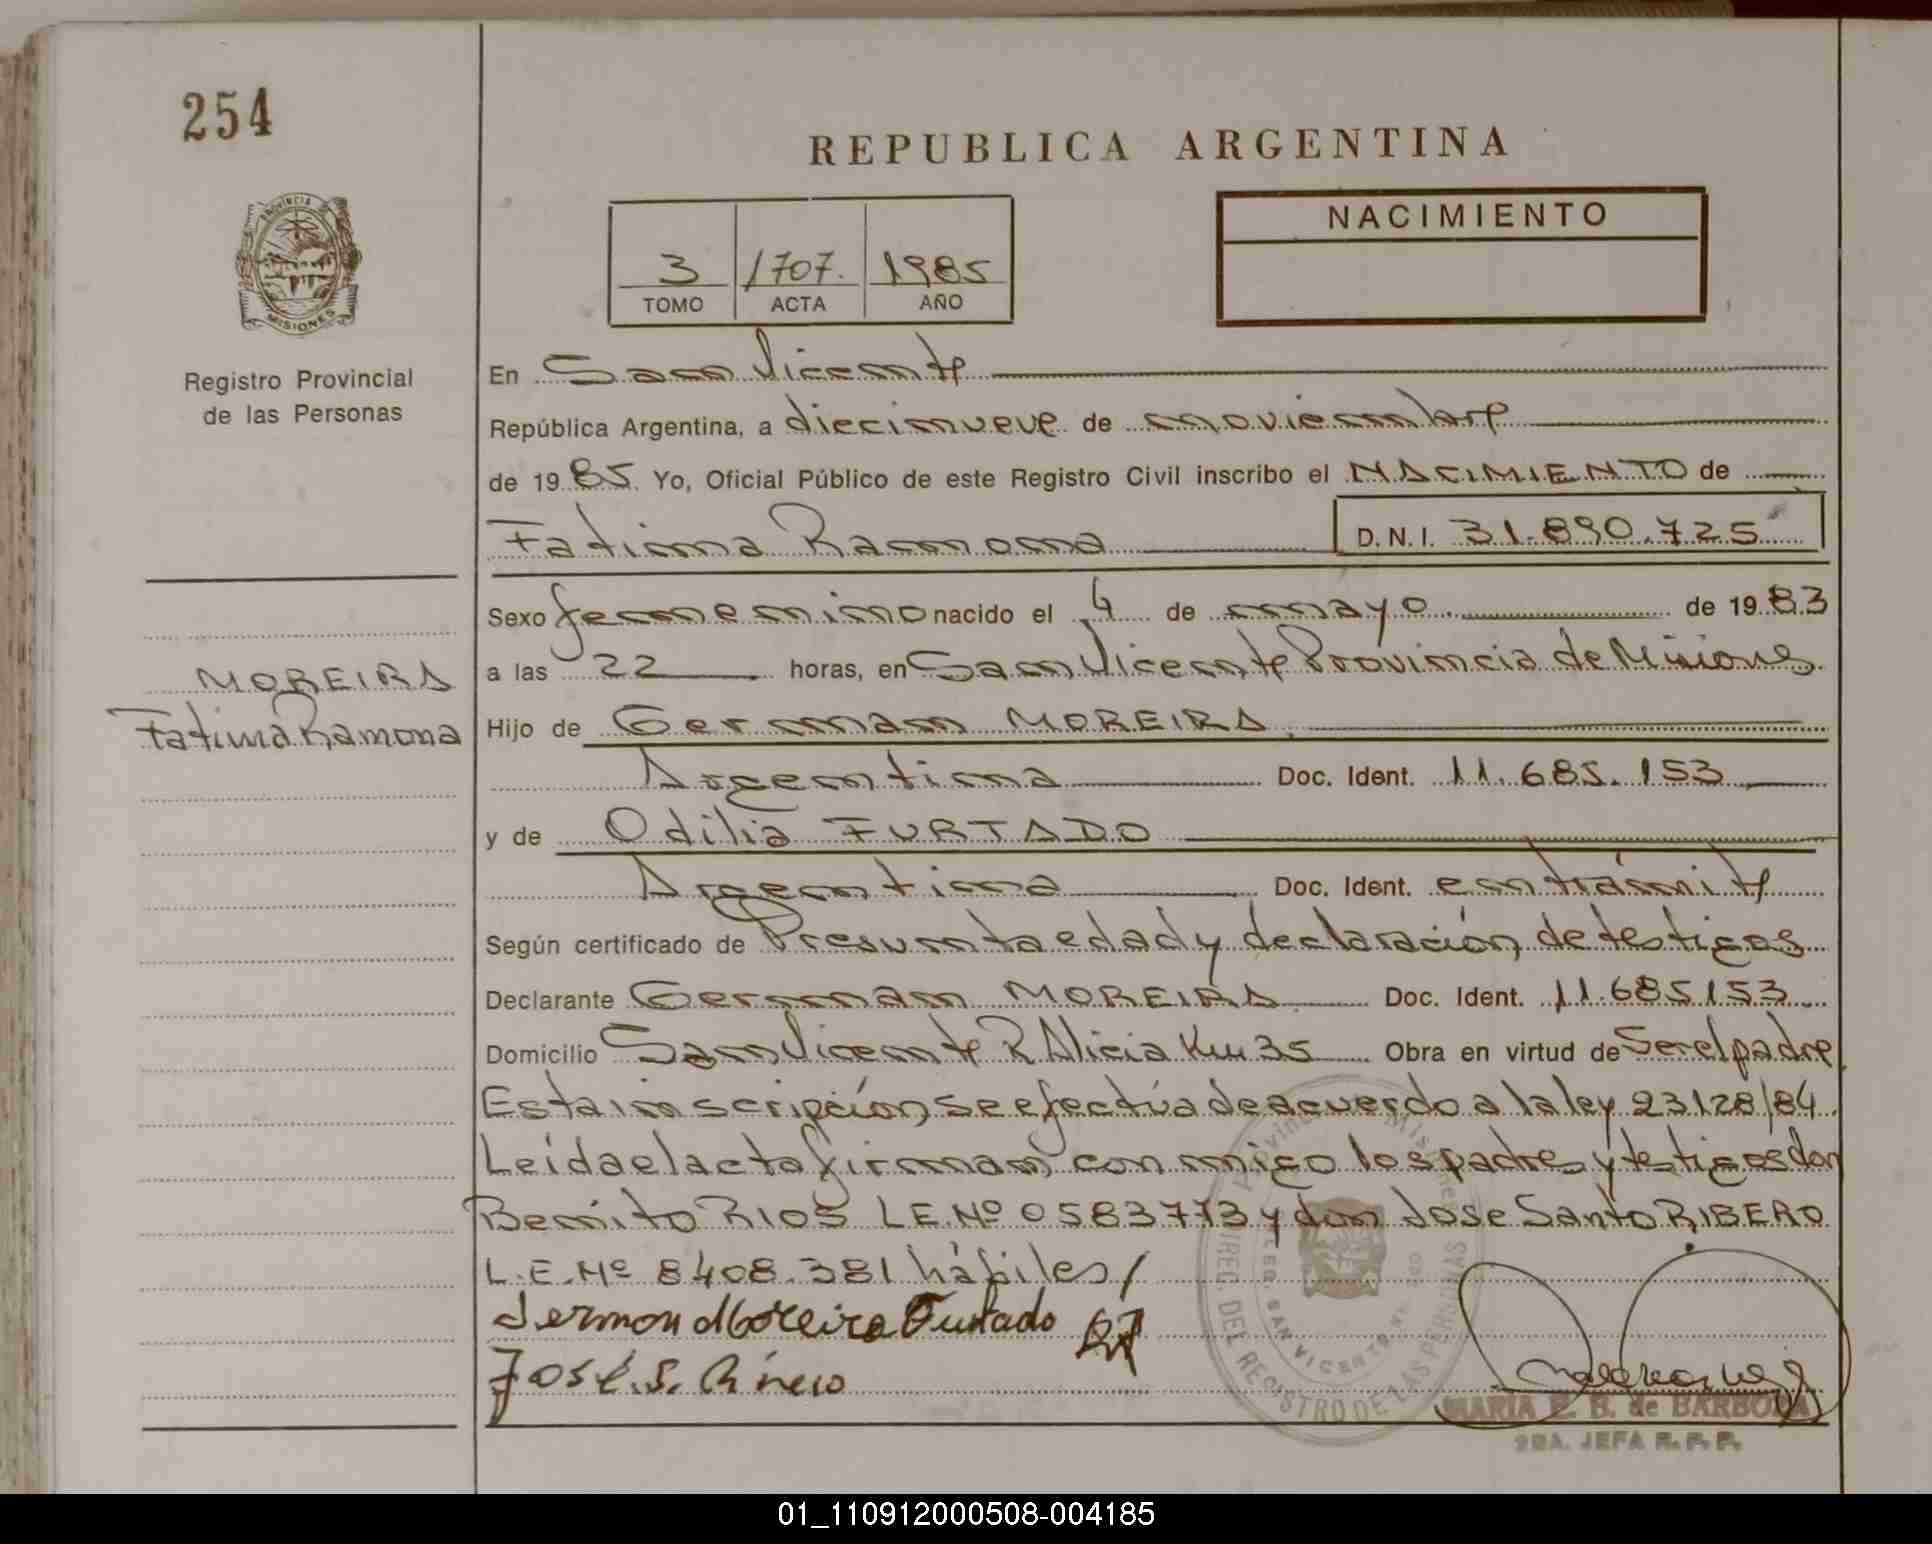 254
REPUBLICA ARGENTINA
PROVINCIA DE
MISIONES
Registro Provincial
de las Personas
3 1707. 1985
TOMO ACTA AÑO
NACIMIENTO
En San Vicente
República Argentina, a diecinueve de noviembre
de 1985. Yo, Oficial Público de este Registro Civil inscribo el NACIMIENTO de
Fatima Ramona D.N.I. 31.890.725
Sexo femenino nacido el 4 de mayo de 1983
a las 22 horas, en San Vicente Provincia de Misiones
MOREIRA
Fatima Ramona
Hijo de German MOREIRA
Argentina Doc. Ident. 11.685.153
y de Odilia FURTADO
Argentina Doc. Ident. en trámite
Según certificado de Presunta edad y declaración de testigos
Declarante German MOREIRA Doc. Ident. 11.685153
Domicilio San Vicente R Alicia Km 35 Obra en virtud de Ser el padre
Esta inscripción se efectúa de acuerdo a la ley 23128/84.
Leída el acta firman conmigo los padres y testigos don
Benito RIOS L.E.Nº 0583773 y don Jose Santo RIBERO
L.E.Nº 8408.381 hábiles/
German Moreira Furtado
José.S.
DIREC. DEL REGISTRO DE LAS PERSONAS
SAN VICENTE
MARIA E. B. de BARBOZA
JEFA R. P. P.
01_110912000508-004185